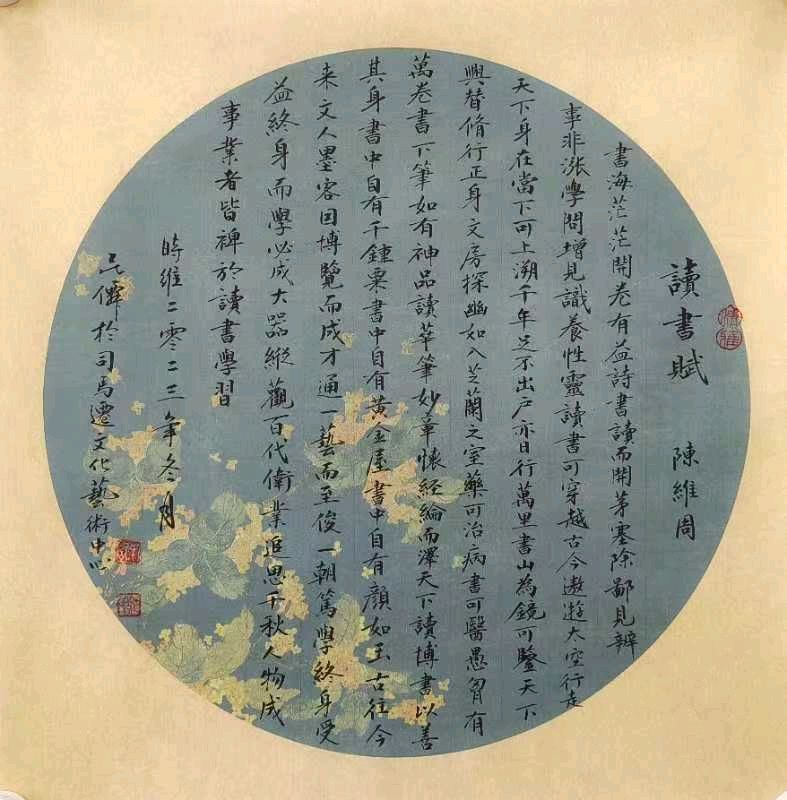 讀書賦 陳維周
書海茫茫開卷有益詩書讀而開茅塞除鄙見辨
事非漲學問增見識養性靈讀書可穿越古今遨遊太空行走
天下身在當下可上溯千年足不出戶亦日行萬里書山為鏡可鑒天下
興替脩行正身文房探幽如入芝蘭之室藥可治病書可醫愚胷有
萬卷書下筆如有神品讀華筆妙章懷經綸而澤天下讀博書以善
其身書中自有千鍾粟書中自有黃金屋書中自有顏如玉古往今
来文人墨客因博覽而成才通一藝而至俊一朝篤學終身受
益終身而學必成大器縱觀百代衛業追思千秋人物成
事業者皆裨於讀書學習
時維二零二三年冬月
於司馬遷文化藝術中心